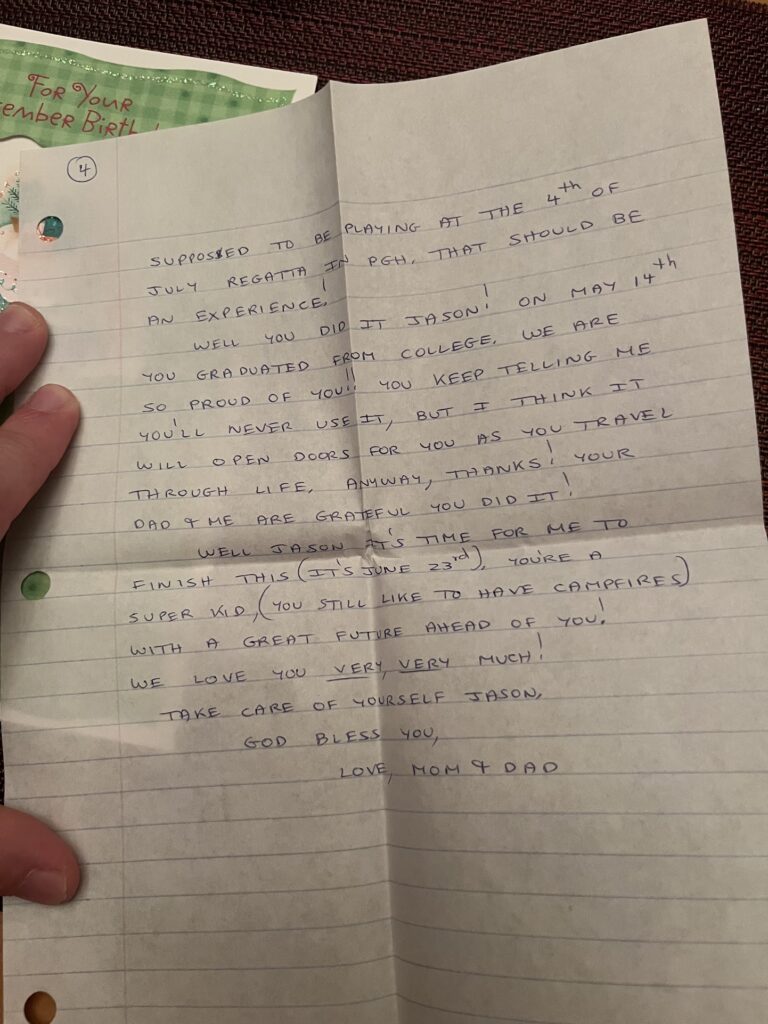 For Your
ember Birth
4
SUPPOSED TO BE PLAYING AT THE 4th OF
JULY REGATTA IN PGH. THAT SHOULD BE
AN EXPERIENCE!
WELL YOU DID IT JASON! ON MAY 14th
YOU GRADUATED FROM COLLEGE. WE ARE
SO PROUD OF YOU!! YOU KEEP TELLING ME
YOU'LL NEVER USE IT, BUT I THINK IT
WILL OPEN DOORS FOR YOU AS YOU TRAVEL
THROUGH LIFE. ANYWAY, THANKS! YOUR
DAD & ME ARE GRATEFUL YOU DID IT!
WELL JASON IT'S TIME FOR ME TO
FINISH THIS (IT'S JUNE 23rd). YOU'RE A
SUPER KID, (YOU STILL LIKE TO HAVE CAMPFIRES)
WITH A GREAT FUTURE AHEAD OF YOU!
WE LOVE YOU VERY, VERY MUCH!
TAKE CARE OF YOURSELF JASON,
GOD BLESS YOU,
LOVE, MOM & DAD